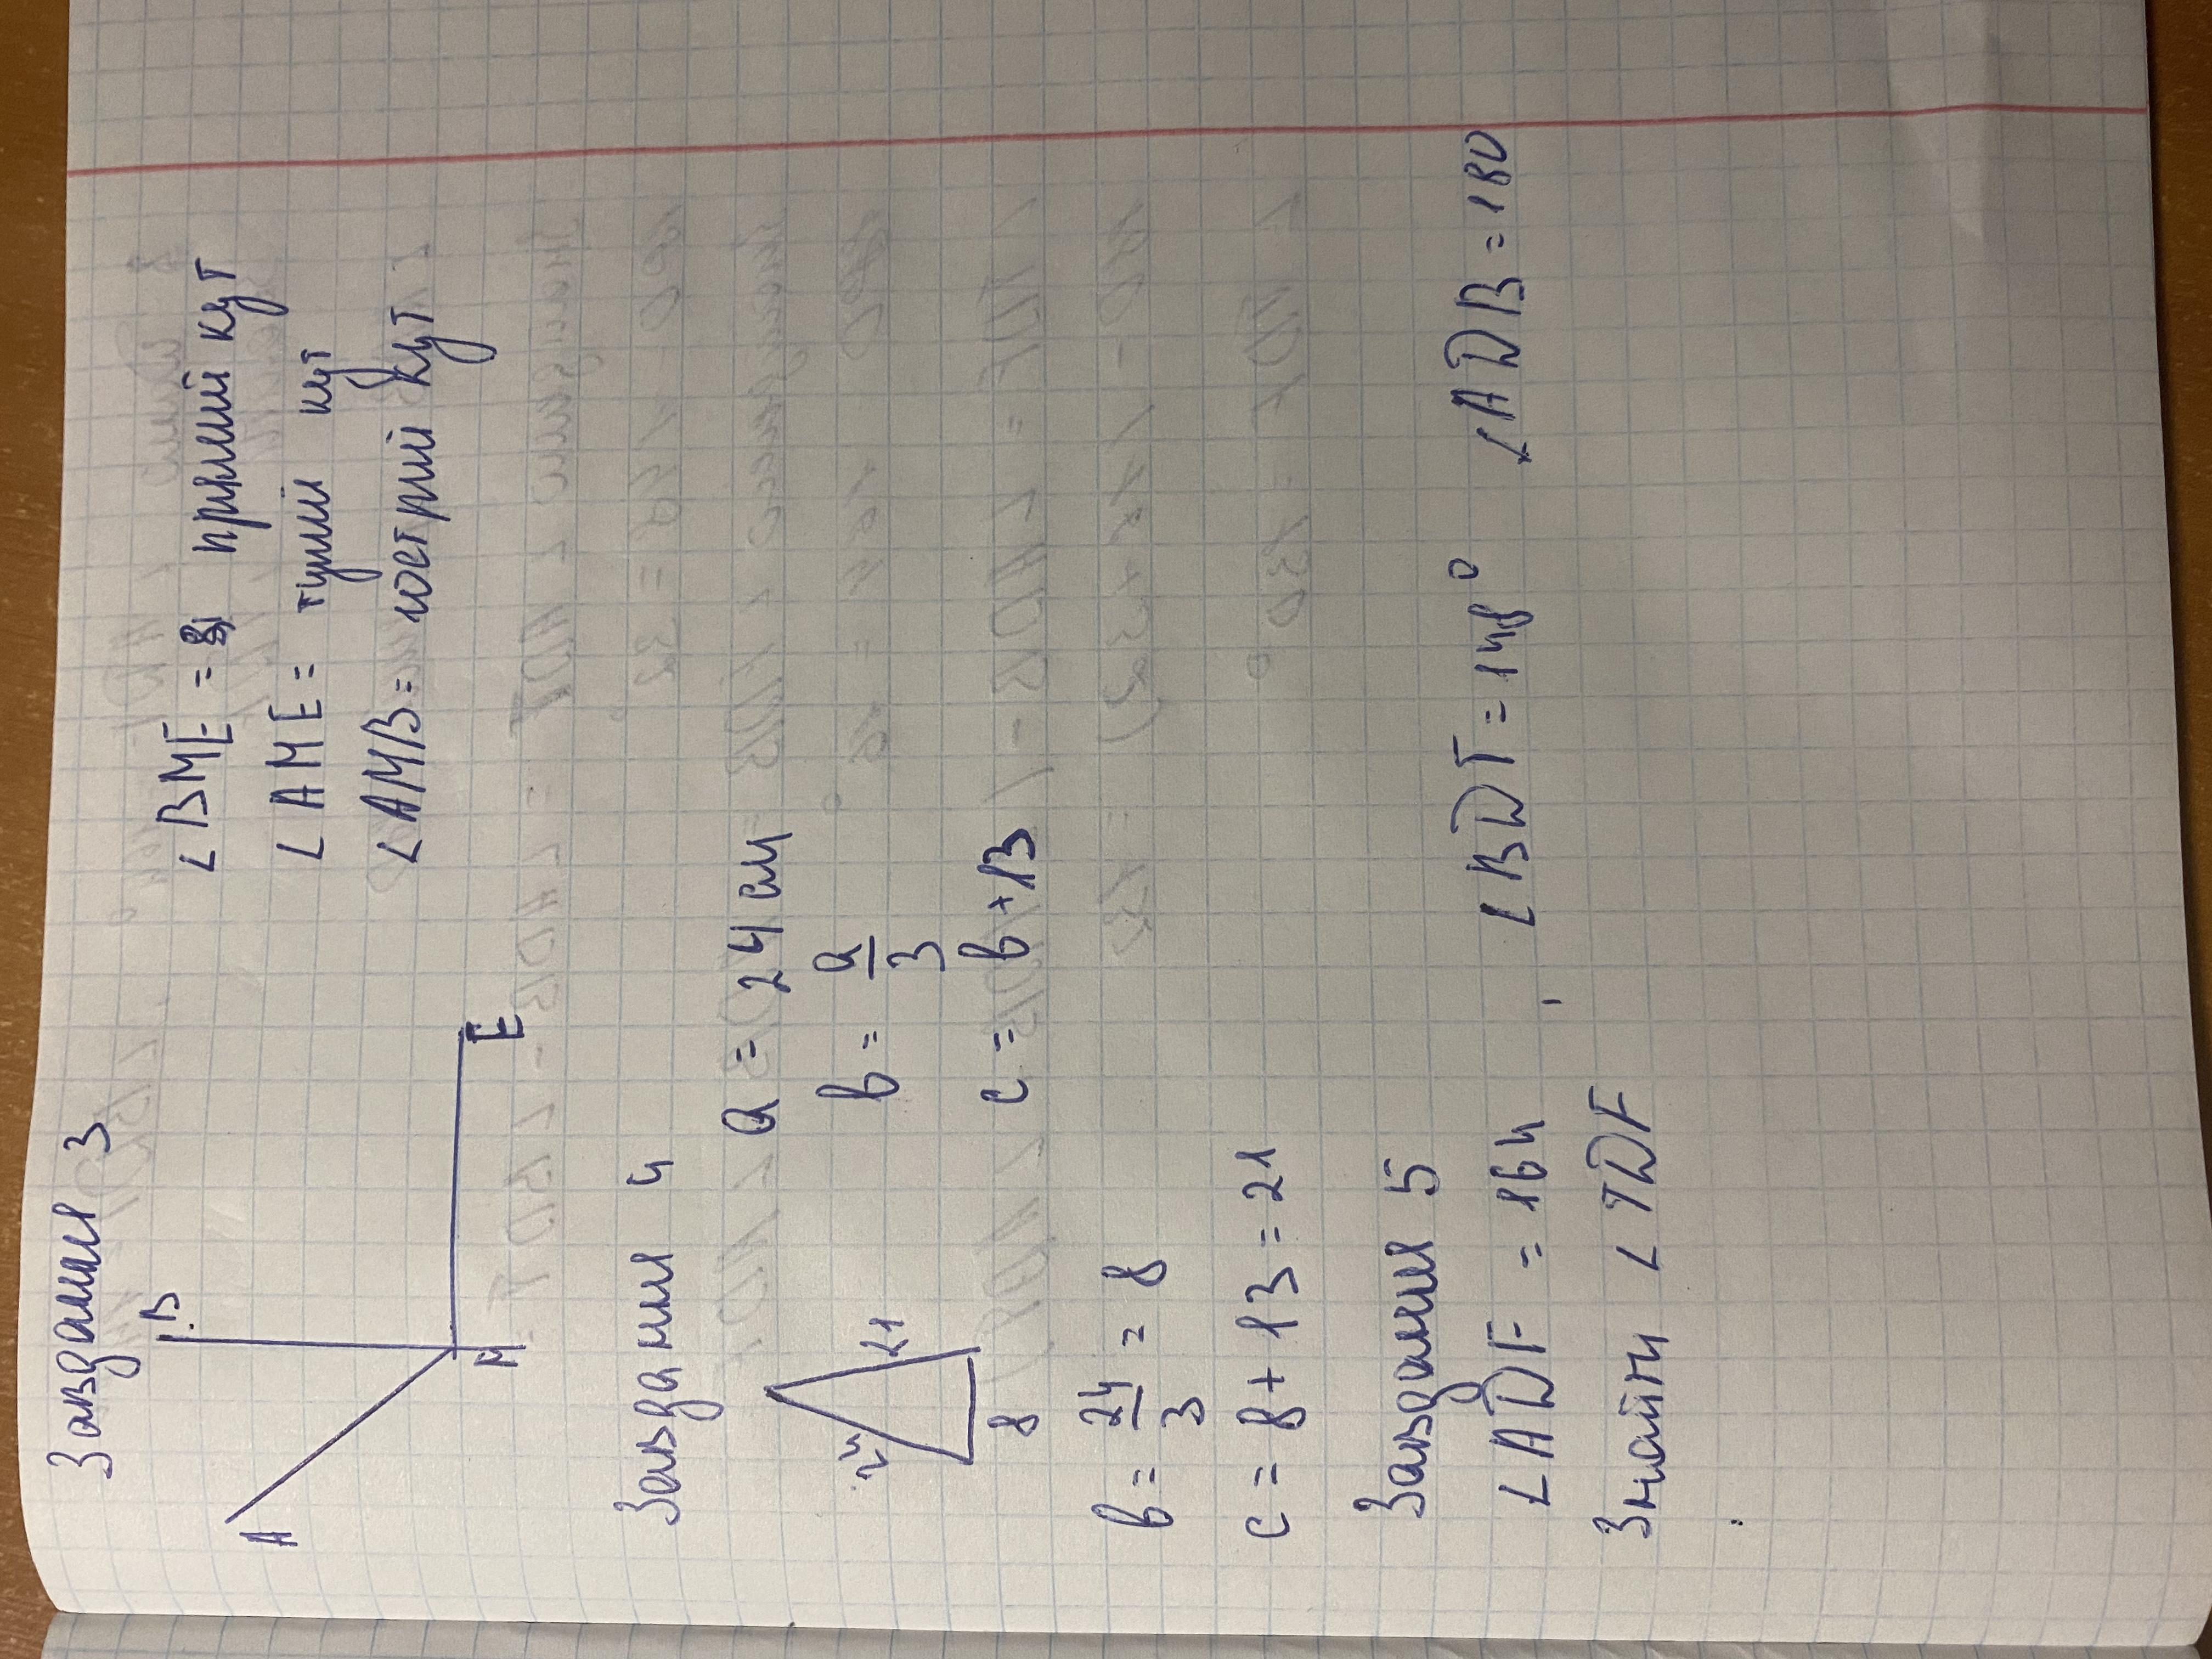 Завдання 3
∠BME = прямий кут
∠AME = тупий кут
∠AMB = гострий кут
A
B
M
E
Завдання 4
a = 24 см
b = a/3
c = b + 13
24
21
8
b = 24/3 = 8
c = 8 + 13 = 21
Завдання 5
∠ADF = 164, ∠BDT = 148° ∠ADB = 180
Знайти ∠TDF